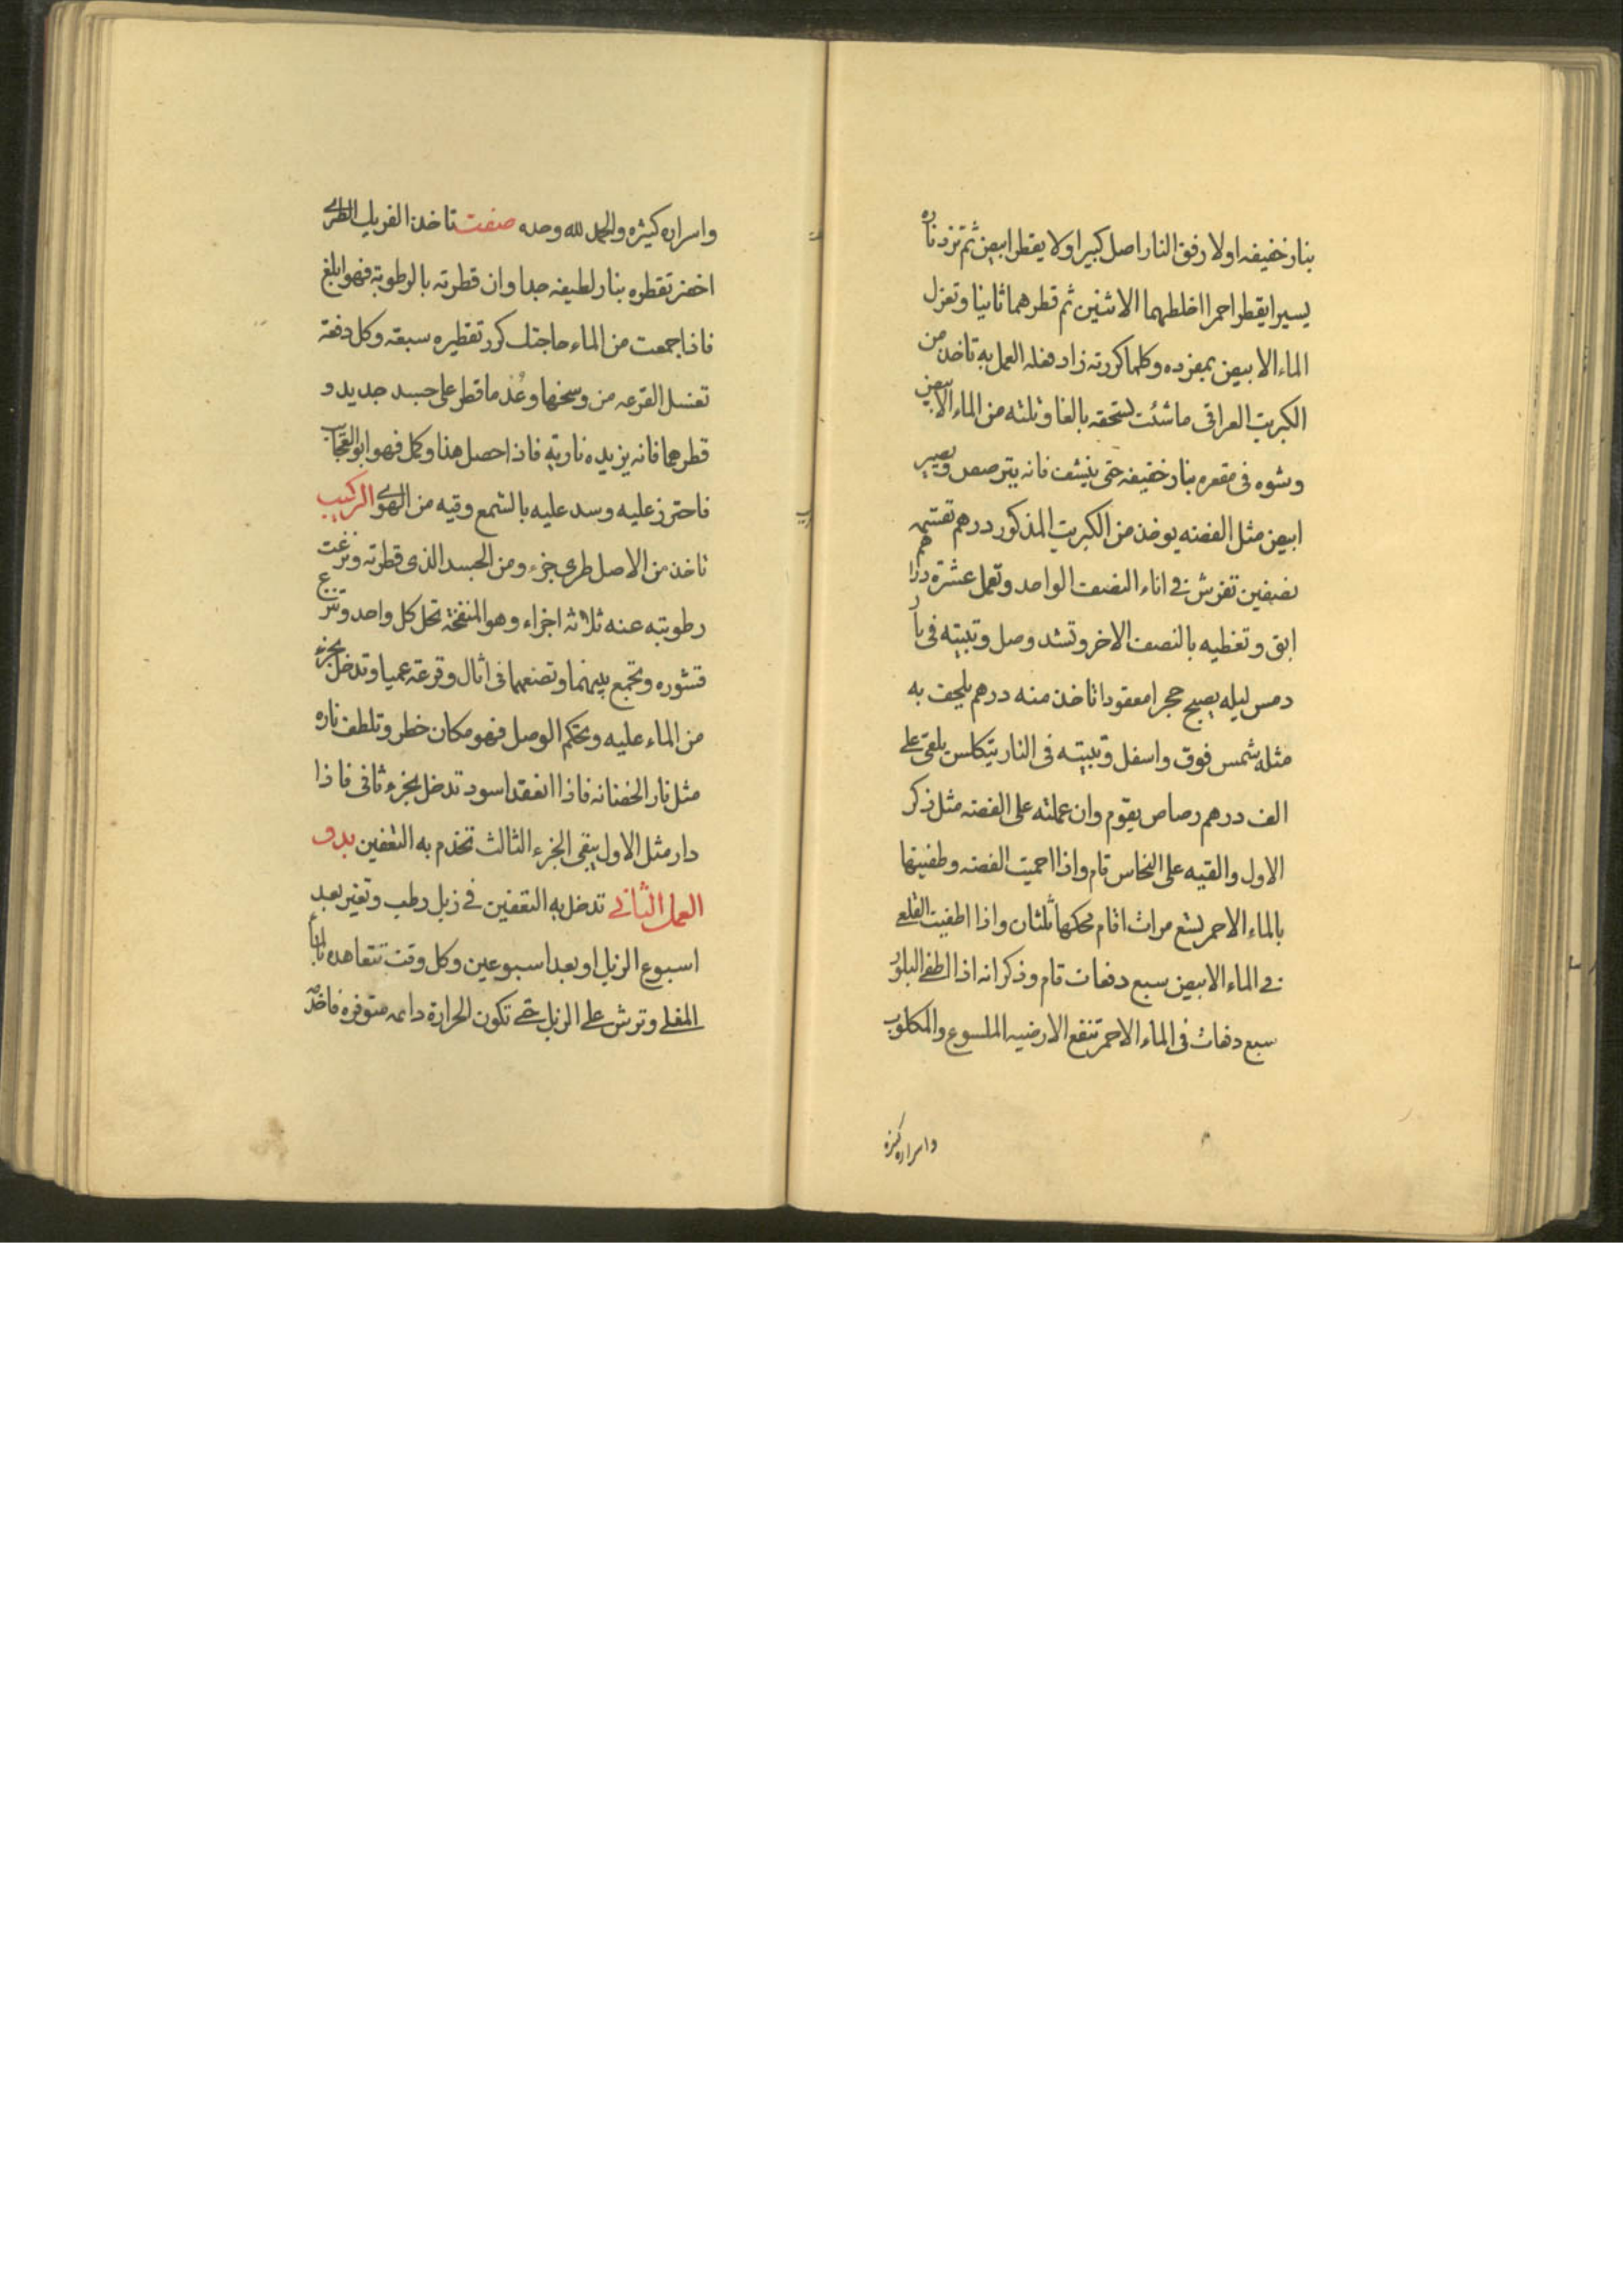 بنار خفيفه اولا رفق النار اصل كبير اولا يقطر ابيض ثم تزد ناره
يسيرا يقطر احمر اخلطهما الاثنين ثم قطرهما ثانيا وتعزل
الماء الابيض بمفرده وكلما كررته زاد فعله العمل به تاخذ من
الكبريت العراقى ماشئت تسحقه بالغا وتلته من الماء الابيض
وشوه فى مقعره بنار خفيفه حتى ينشف فانه يترصص ويصير
ابيض مثل الفضه يوخذ من الكبريت المذكور درهم تقسمه
نصفين تفرش فى اناء النصف الواحد وتعمل عشرة دراهم
ابق وتغطيه بالنصف الاخر وتشد وصل وتبيته فى نار
دمس ليله يصبح حجرا معقودا تاخذ منه درهم يلحف به
مثله شمس فوق واسفل وتبيته فى النار يتكلس يلقى على
الف درهم رصاص يقوم وان عملته على الفضه مثل ذكر
الاول والقيه على النحاس قام واذا احميت الفضه وطفيتها
بالماء الاحمر تسع مرات اقام محكها ثلثان واذا اطفيت القلعى
فى الماء الابيض سبع دفعات قام وذكر انه اذا اطفى البلور
سبع دفعات فى الماء الاحمر تنفع الارضيه الملسوع والمكلوب
واسراره كثيره
واسراره كثيره والحمد لله وحده صفت تاخذ الفريك الطرى
اخضر تقطره بنار لطيفه جدا وان قطرته بالرطوبة فهو ابلغ
فاذا جمعت من الماء حاجتك كرر تقطيره سبعة وكل دفعة
تغسل القرعه من وسخها وعد ما قطر على جسد جديد و
قطرهما فانه يزيده نارية فاذا حصل هذا وكمل فهو ابو العجايب
فاحترز عليه وسد عليه بالشمع وقيه من الهوى التركيب
تاخذ من الاصل طرى جزء ومن الجسد الذى قطرته ونزعت
رطوبته عنه ثلاثه اجزاء وهو المنفخة تحل كل واحد وتنزع
قشوره وتجمع بينهما وتضعهما فى اثال وقرعة عميا وتدخل بجزء
من الماء عليه ويحتكم الوصل فهو مكان خطر وتلطف ناره
مثل نار الحضانه فاذا انعقد اسود تدخل بجزء ثانى فاذا
دار مثل الاول يبقى الجزء الثالث تخدم به التعفين بدو
العمل الثانى تدخل به التعفين فى زبل رطب وتغير بعد
اسبوع الزبل او بعد اسبوعين وكل وقت تتعاهده بالماء
المغلى وترش على الزبل حتى تكون الحرارة دايمه متوفره